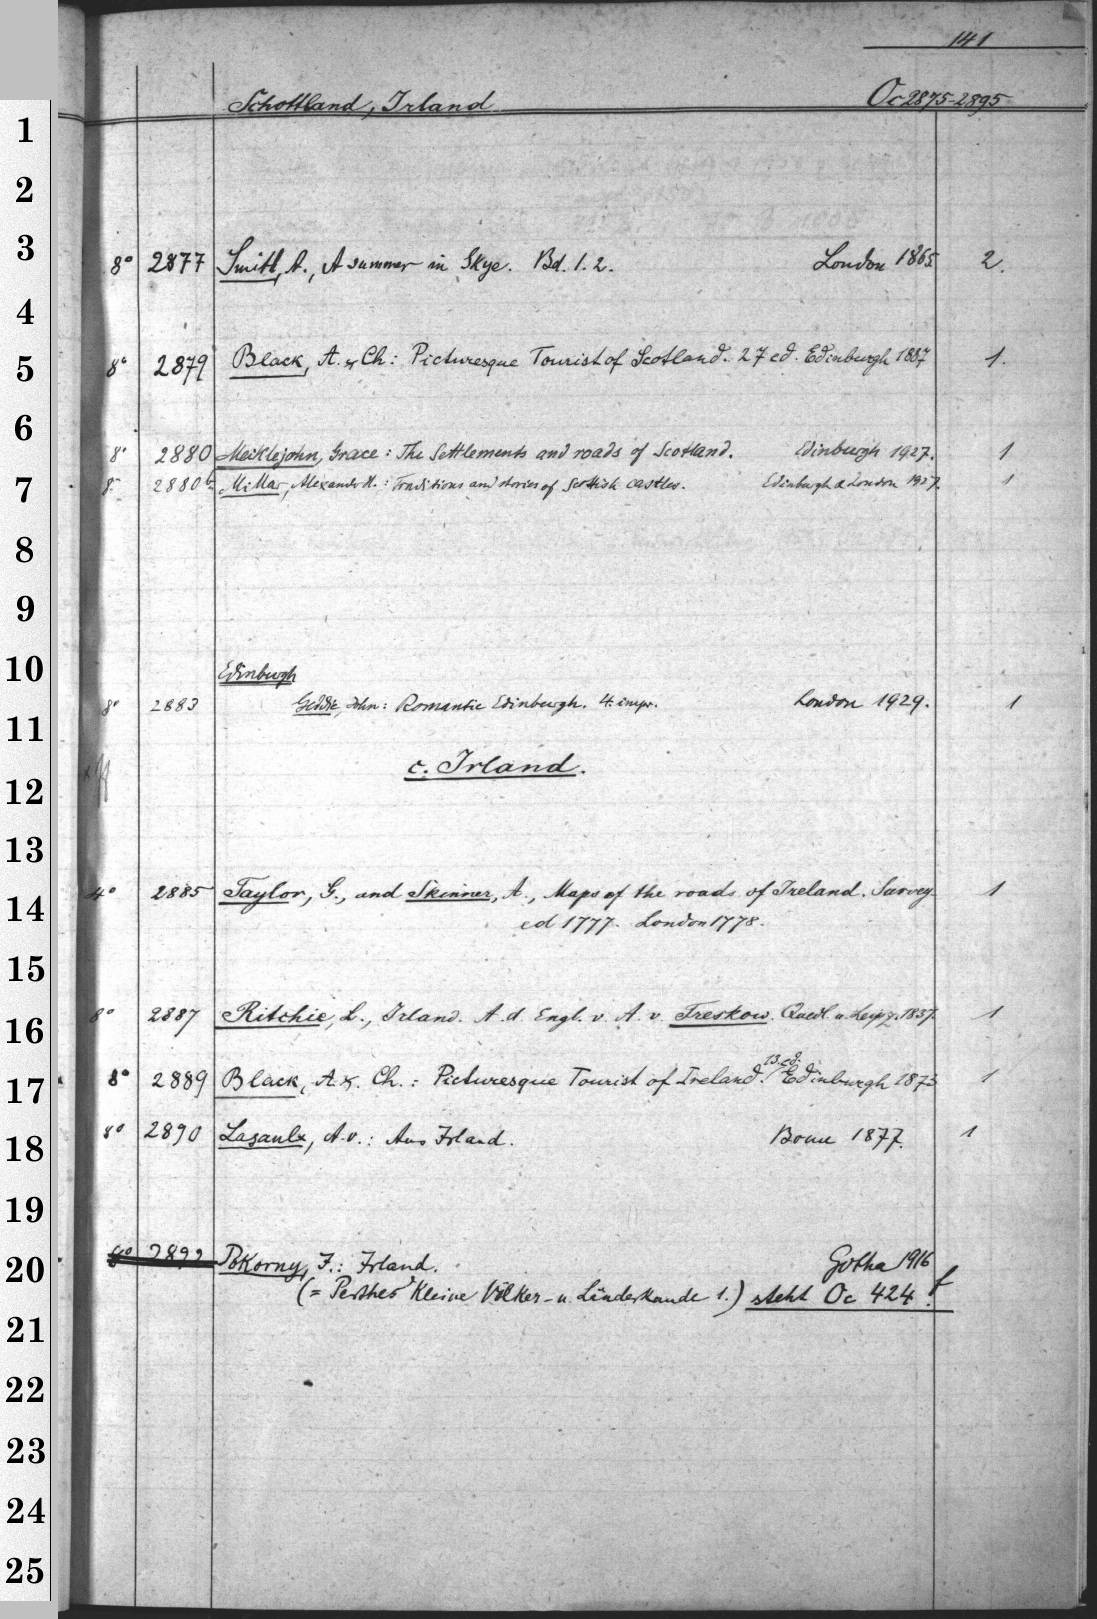 141
Schottland, Irland Oc 2875-2895
1
2
3
8° 2877 Smith, A., A summer in Skye. Bd. 1. 2. London 1865 2.
4
5
8° 2879 Black, A. & Ch: Picturesque Tourist of Scotland. 27 ed. Edinburgh 1887 1.
6
8° 2880 Meiklejohn, Grace: The Settlements and roads of Scotland. Edinburgh 1927. 1
7
8° 2880b Millar, Alexander H.: Traditions and stories of Scottish castles. Edinburgh & London 1927. 1
8
9
10
Edinburgh
8° 2883 Geddie, John: Romantic Edinburgh. 4. impr. London 1929. 1
11
c. Irland.
12
13
4° 2885 Taylor, G., and Skinner, A., Maps of the roads of Ireland. Survey 1
14
ed 1777. London 1778.
15
8° 2887 Ritchie, L., Irland. A. d. Engl. v. A. v. Treskow. Quedl. u. Leipz. 1837. 1
16
13. ed.
8° 2889 Black, A. &. Ch.: Picturesque Tourist of Ireland. Edinburgh 1873 1
17
8° 2890 Lasaulx, A. v.: Aus Irland. Bonn 1877. 1
18
19
8° 2892 Pokorny, J.: Irland. Gotha 1916
20
(= Perthes' Kleine Völker- u. Länderkunde 1.) steht Oc 424 f.
21
22
23
24
25